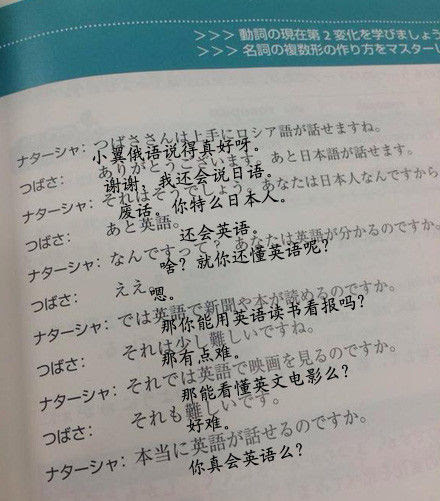 >>> 動詞の現在第2変化を学びましょう
>>> 名詞の複数形の作り方をマスターし
ナターシャ: つばささんは上手にロシア語が話せますね。
小翼俄语说得真好呀。
つばさ: ありがとうございます。あと日本語が話せます。
谢谢，我还会说日语。
ナターシャ: それはそうでしょう。あなたは日本人なんですから
废话。你特么日本人。
つばさ: あと英語。
还会英语。
ナターシャ: なんですって? あなたは英語が分かるのですか。
啥？就你还懂英语呢？
つばさ: ええ。
嗯。
ナターシャ: では英語で新聞や本が読めるのですか。
那你能用英语读书看报吗？
つばさ: それは少し難しいですね。
那有点难。
ナターシャ: それでは英語で映画を見るのですか。
那能看懂英文电影么？
つばさ: それも難しいです。
好难。
ナターシャ: 本当に英語が話せるのですか。
你真会英语么？